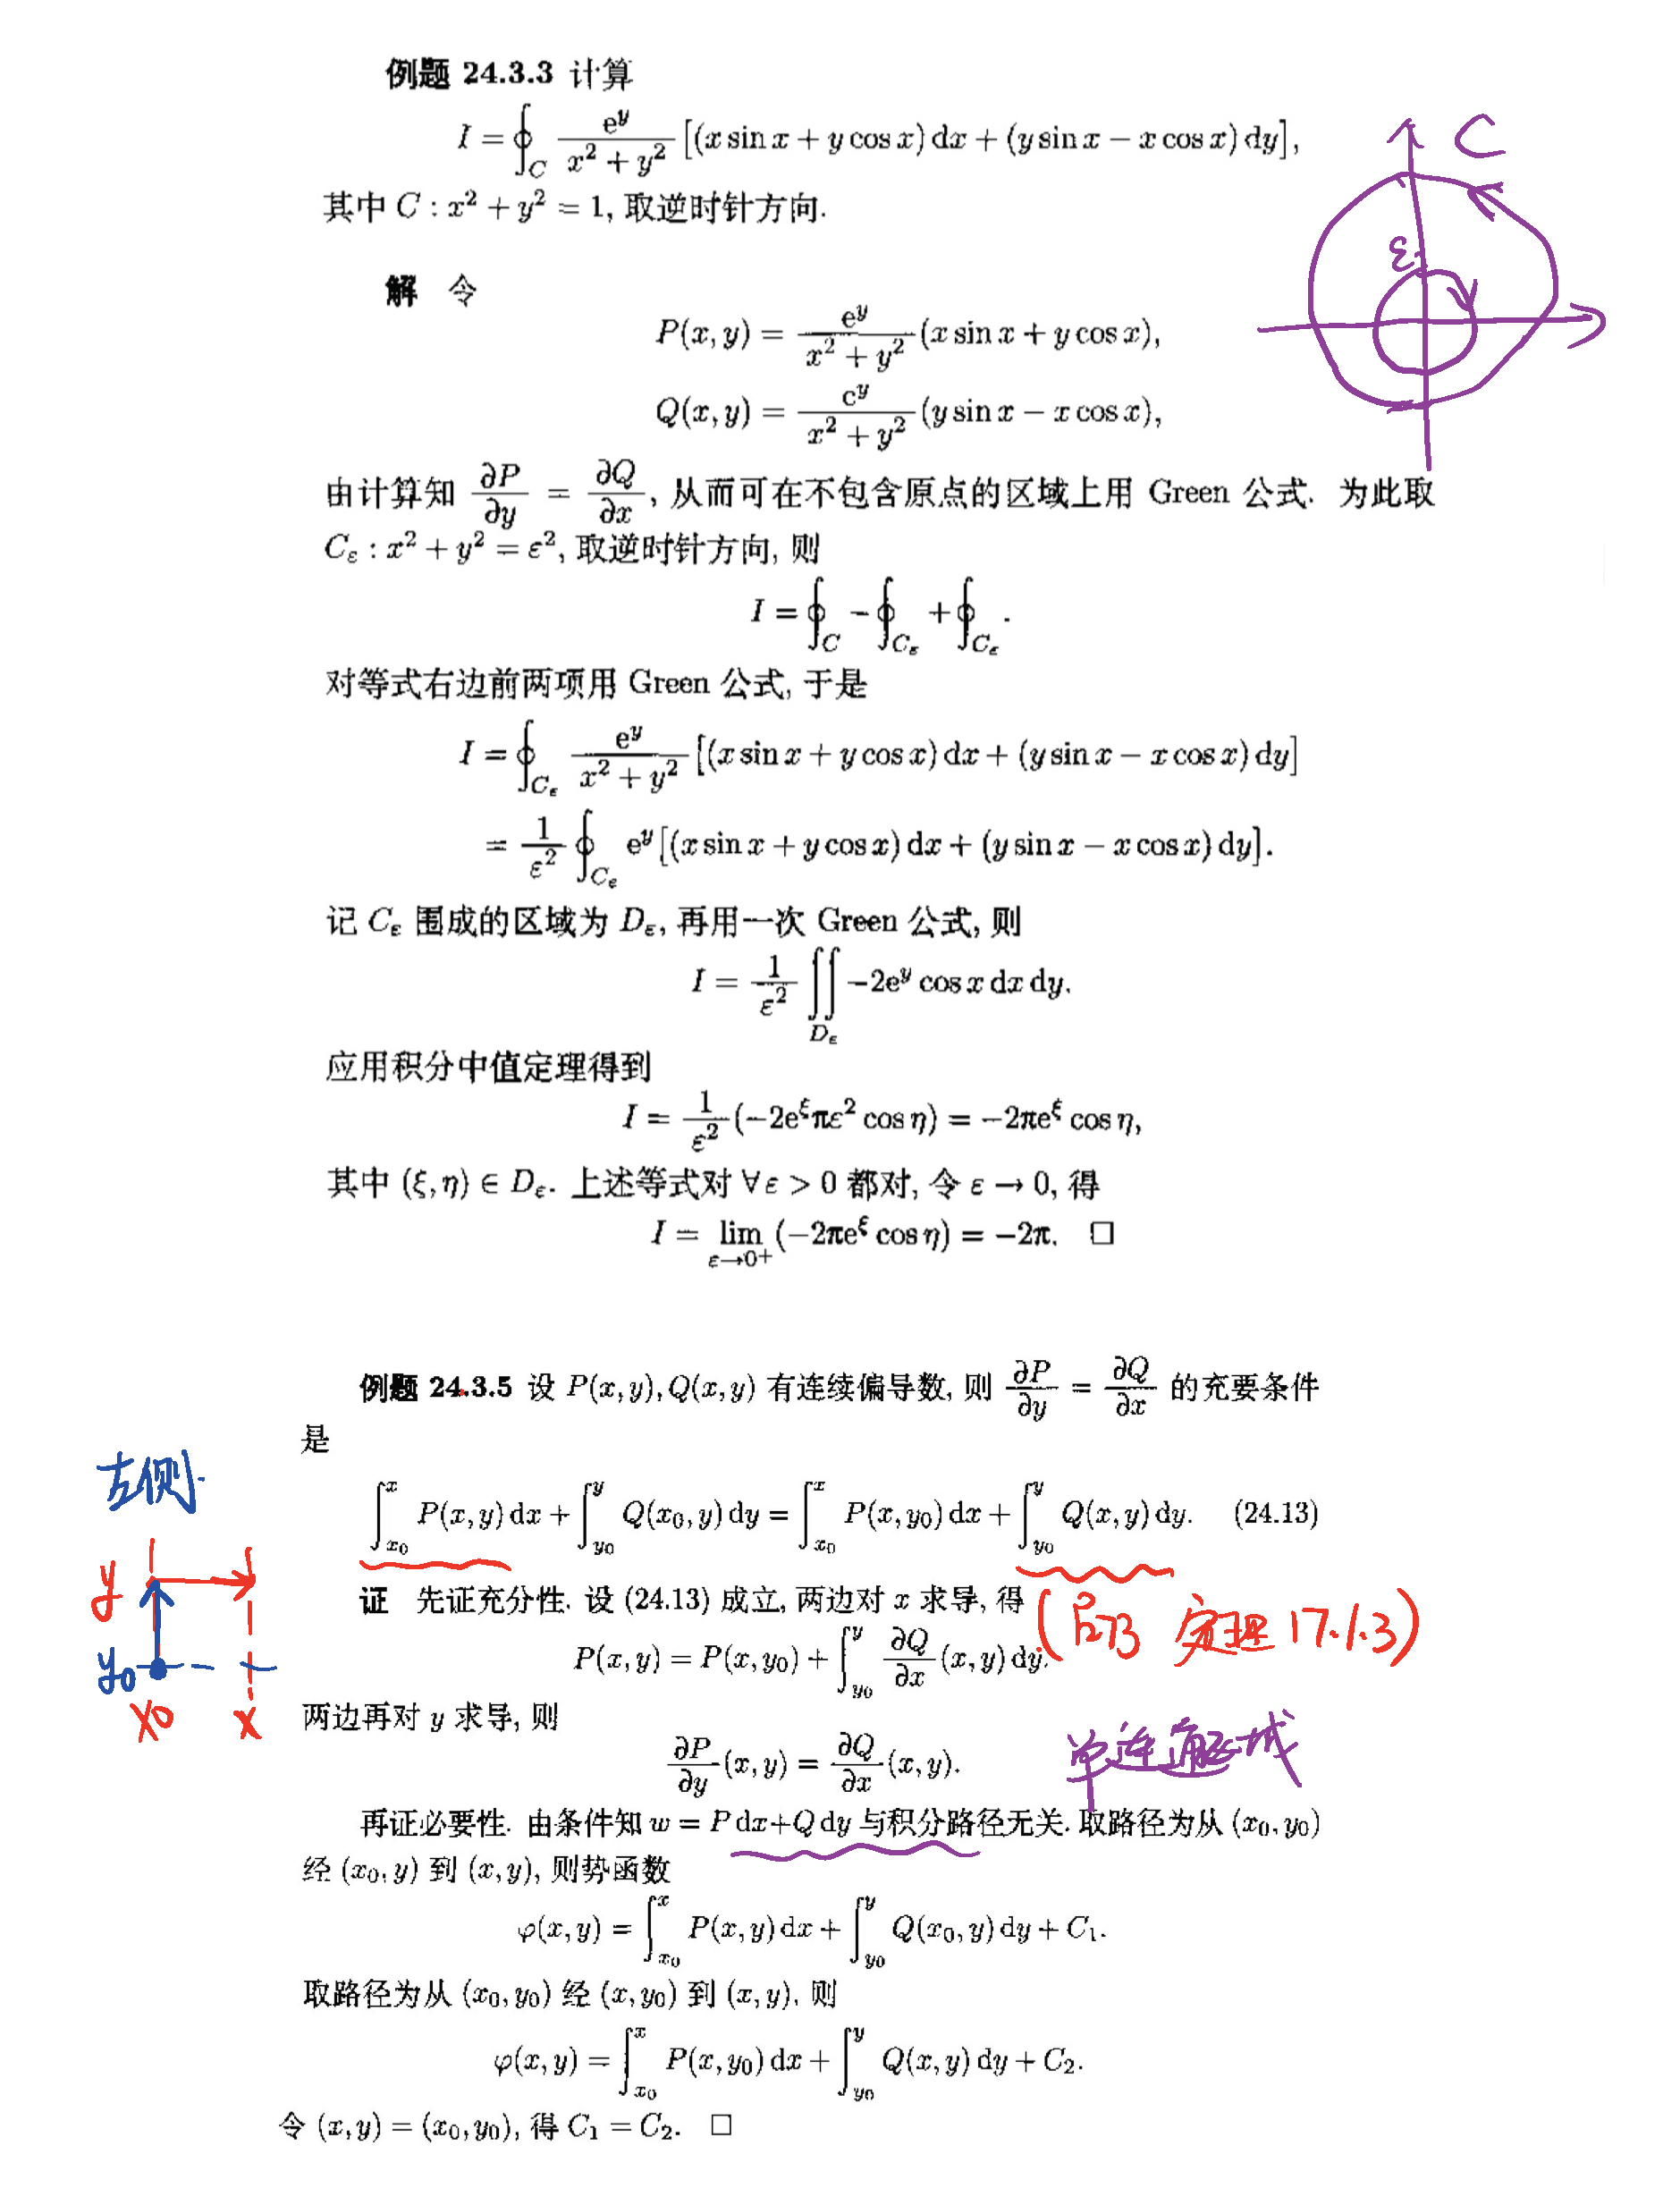 例题 24.3.3 计算
I = ∮_C e^y/(x²+y²) [(x sin x + y cos x) dx + (y sin x − x cos x) dy],
C
其中 C : x² + y² = 1, 取逆时针方向.
ε
解 令
P(x, y) = e^y/(x² + y²) (x sin x + y cos x),
Q(x, y) = e^y/(x² + y²) (y sin x − x cos x),
由计算知 ∂P/∂y = ∂Q/∂x, 从而可在不包含原点的区域上用 Green 公式. 为此取
C_ε : x² + y² = ε², 取逆时针方向, 则
I = ∮_C − ∮_{C_ε} + ∮_{C_ε}.
对等式右边前两项用 Green 公式, 于是
I = ∮_{C_ε} e^y/(x² + y²) [(x sin x + y cos x) dx + (y sin x − x cos x) dy]
= 1/ε² ∮_{C_ε} e^y [(x sin x + y cos x) dx + (y sin x − x cos x) dy].
记 C_ε 围成的区域为 D_ε, 再用一次 Green 公式, 则
I = 1/ε² ∬_{D_ε} −2e^y cos x dx dy.
应用积分中值定理得到
I = 1/ε² (−2e^ξ πε² cos η) = −2πe^ξ cos η,
其中 (ξ, η) ∈ D_ε. 上述等式对 ∀ε > 0 都对, 令 ε → 0, 得
I = lim_{ε→0⁺} (−2πe^ξ cos η) = −2π. □
例题 24.3.5 设 P(x, y), Q(x, y) 有连续偏导数, 则 ∂P/∂y = ∂Q/∂x 的充要条件
是
左侧.
∫_{x₀}^{x} P(x, y) dx + ∫_{y₀}^{y} Q(x₀, y) dy = ∫_{x₀}^{x} P(x, y₀) dx + ∫_{y₀}^{y} Q(x, y) dy. (24.13)
y
y₀
x₀ x
证 先证充分性. 设 (24.13) 成立, 两边对 x 求导, 得
定理 17.1.3)
P(x, y) = P(x, y₀) + ∫_{y₀}^{y} ∂Q/∂x (x, y) dy.
两边再对 y 求导, 则
∂P/∂y (x, y) = ∂Q/∂x (x, y).
单连通区域
再证必要性. 由条件知 w = P dx+Q dy 与积分路径无关. 取路径为从 (x₀, y₀)
经 (x₀, y) 到 (x, y), 则势函数
φ(x, y) = ∫_{x₀}^{x} P(x, y) dx + ∫_{y₀}^{y} Q(x₀, y) dy + C₁.
取路径为从 (x₀, y₀) 经 (x, y₀) 到 (x, y), 则
φ(x, y) = ∫_{x₀}^{x} P(x, y₀) dx + ∫_{y₀}^{y} Q(x, y) dy + C₂.
令 (x, y) = (x₀, y₀), 得 C₁ = C₂. □